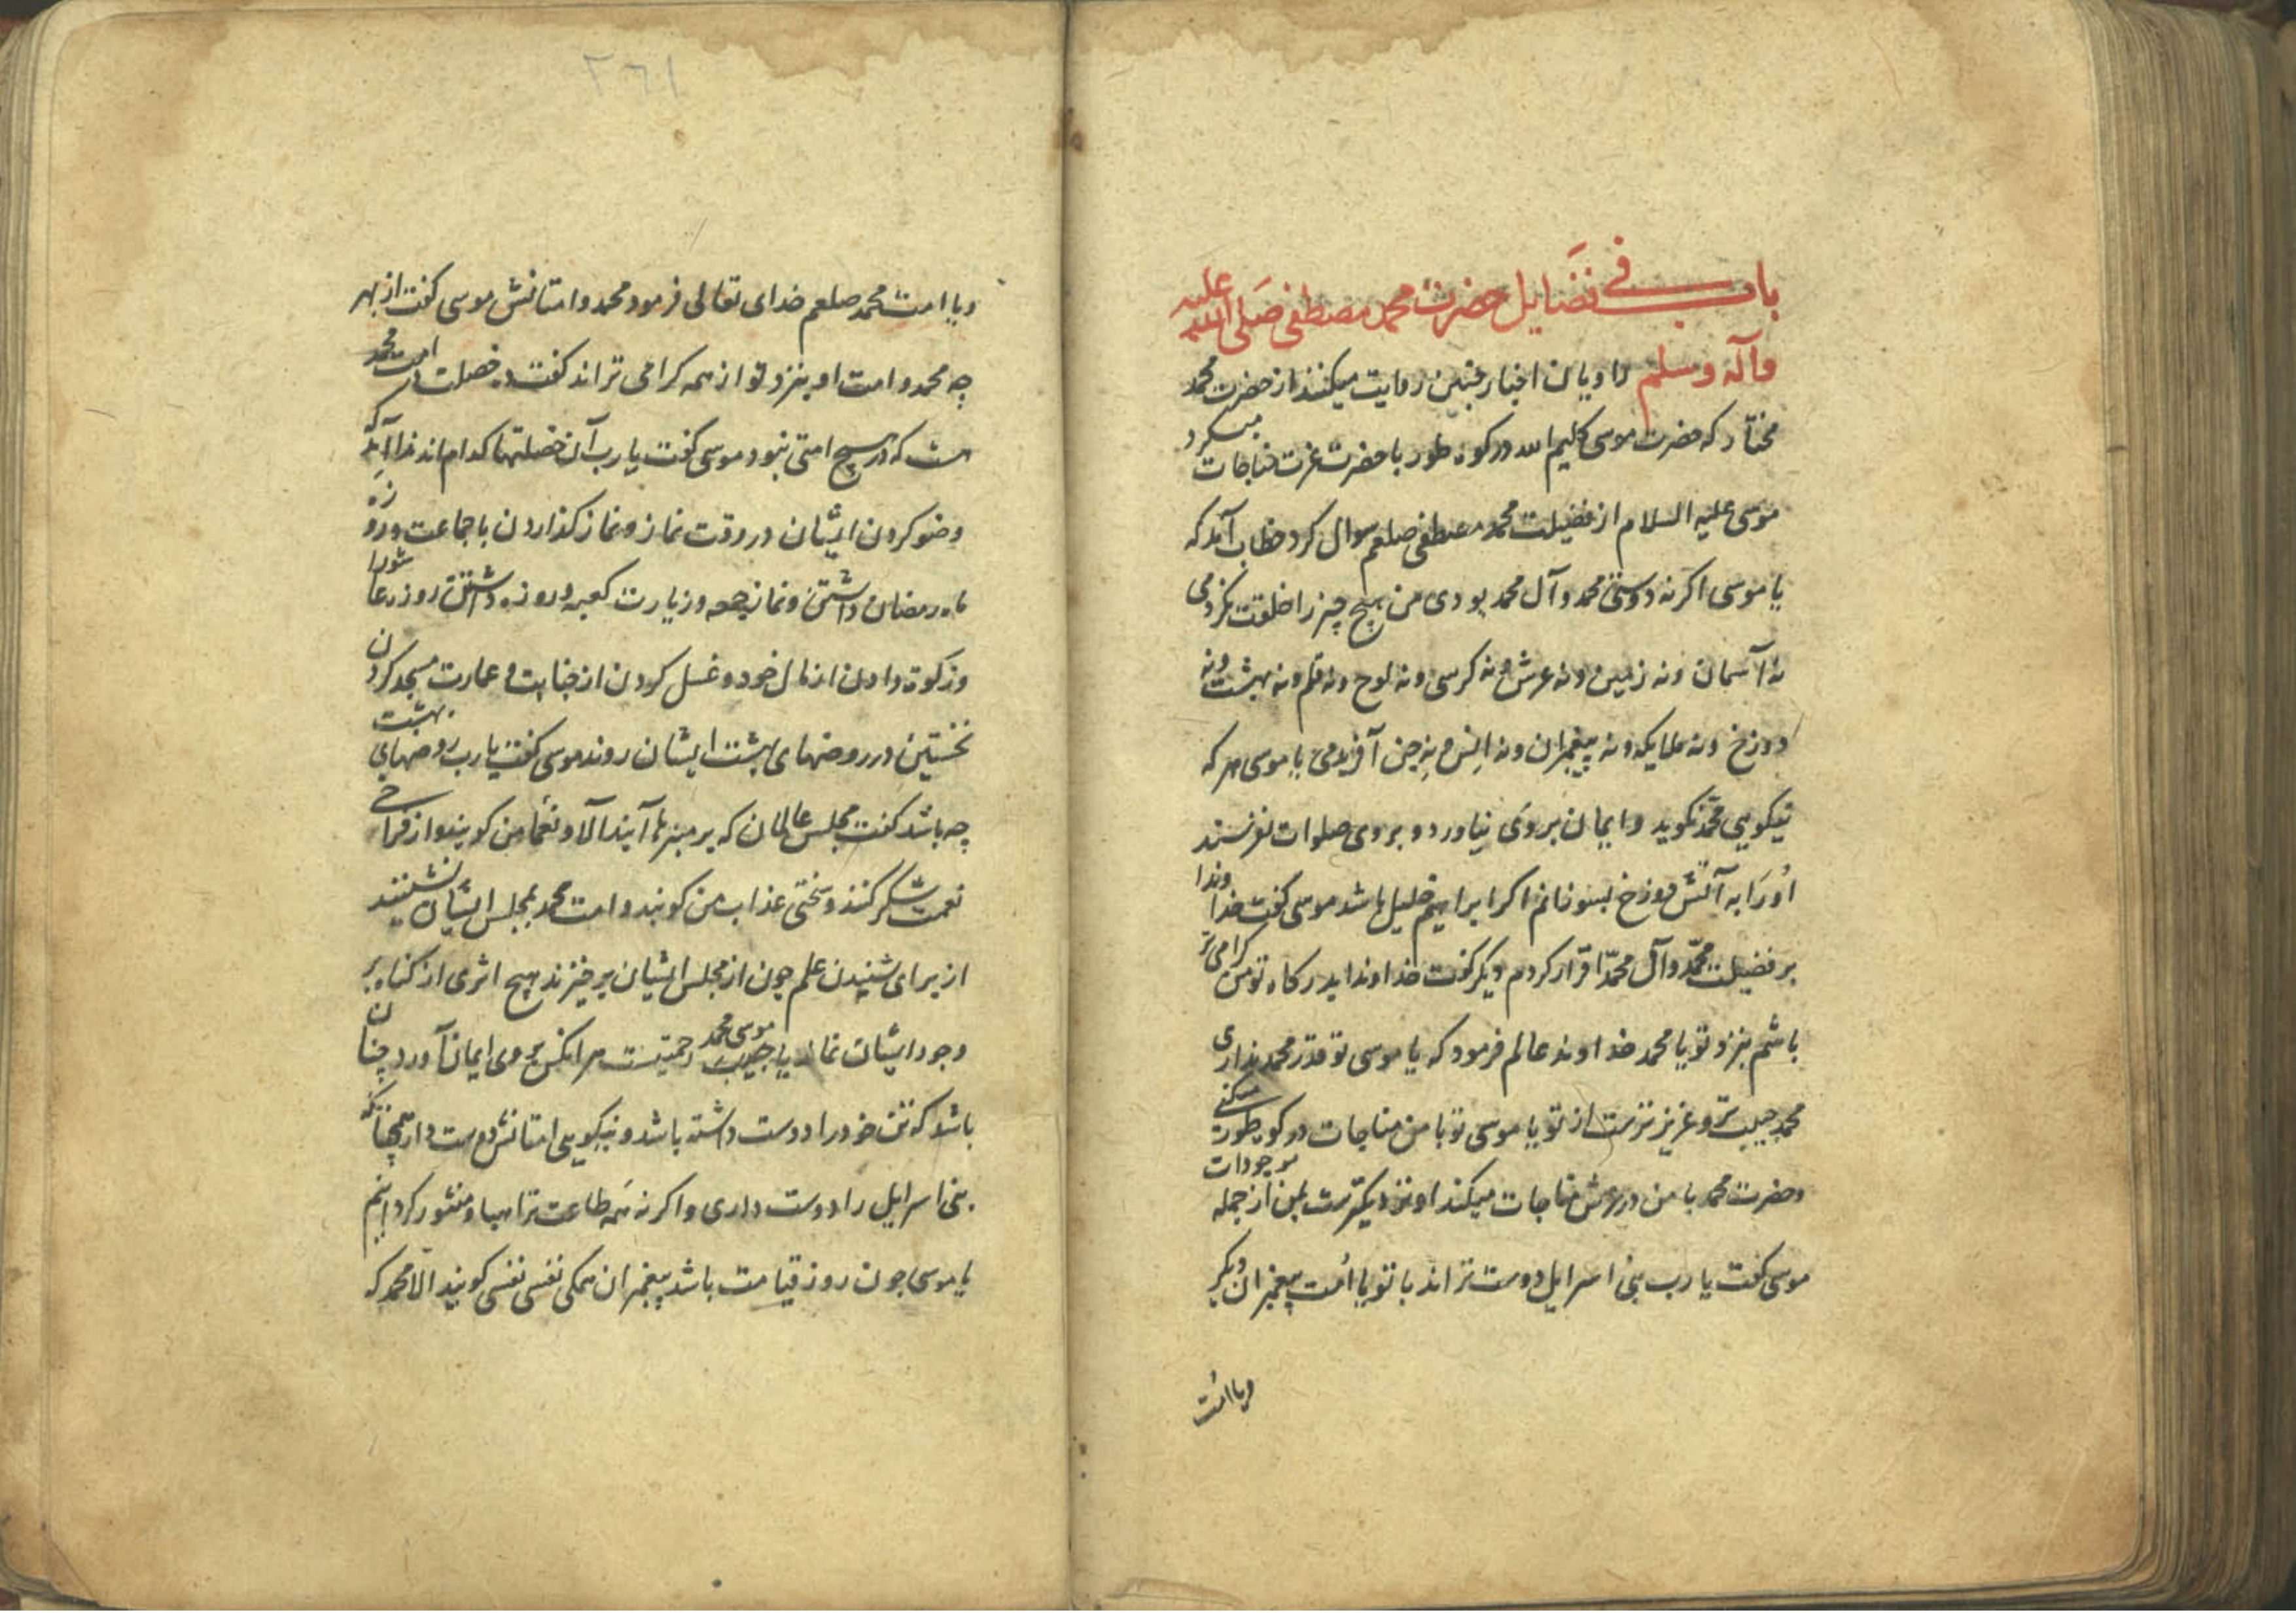 باب فی فضایل حضرت محمد مصطفی صلی الله علیه
وآله وسلم راویان اخبار چنین روایت میکنند از حضرت محمد
مختار که حضرت موسی کلیم الله در کوه طور با حضرت عزت مناجات میکرد
موسی علیه السلام از فضیلت محمد مصطفی صلعم سوال کرد خطاب آمد که
یا موسی اکر نه دوستی محمد و آل محمد بودی من هیچ چیز را خلقت نکردمی
نه آسمان ونه زمین ونه عرش ونه کرسی ونه لوح ونه قلم ونه بهشت ونه
دوزخ ونه ملایکه ونه پیغمبران ونه انس ونه جن آفریدمی یا موسی هر که
نیکویی محمد نکوید و ایمان بر وی نیاورد و بر وی صلوات نفرستد
اورا به آتش دوزخ بسوزانم اکر ابراهیم خلیل باشد موسی کفت خداوندا
بر فضیلت محمد وآل محمد اقرار کردم دیکر کفت خداوندا بدرکاه تو من کرامی تر
باشم بنزد تو یا محمد خداوند عالم فرمود که یا موسی تو قدر محمد نداری
محمد حبیب و عزیزترست از تو یا موسی تو با من مناجات در کوه طور میکنی
وحضرت محمد با من در عرش مناجات میکند او نزدیکترست بمن از جمله موجودات
موسی کفت یا رب بنی اسرایل دوست تراند با تو یا امت پیغمبران دیکر
ویا امت
٢٦١
ویا امت محمد صلعم خدای تعالی فرمود محمد وامتانش موسی کفت از بهر
چه محمد و امت او بنزد تو از همه کرامی تراند کفت ده خصلت در امت محمد
هست که در هیچ امتی نبود موسی کفت یا رب آن خصلتها کدام اند
وضو کردن ایشان در وقت نماز ونماز کذاردن با جماعت وروزه
ماه رمضان داشتن ونماز جمعه وزیارت کعبه وروزه داشتن روز عاشورا
وزکوة دادن از مال خود وغسل کردن از جنابت وعمارت مسجد کردن
نخستین در روضهای بهشت ایشان روند موسی کفت یا رب روضهای بهشت
چه باشد کفت مجلس عالمان که بر منبرها آیند آلا ونعماء من کویند واز فراخی
نعمت شکر کنند وسختی عذاب من کویند وامت محمد بمجلس ایشان نشینند
از برای شنیدن علم چون از مجلس ایشان برخیزند هیچ اثری از کناه بر
وجود ایشان نماند یا موسی محمد حبیب رحمتیست هر آنکس بر وی ایمان آورد چنان
باشد که تن خود را دوست داشته باشد ونیکویی امتانش دوست دار همچنانکه
بنی اسرایل را دوست داری واکر نه همه طاعت ترا هباء منثور کردانیم
یا موسی چون روز قیامت باشد پیغمبران همکی نفسی نفسی کویند الا محمد که